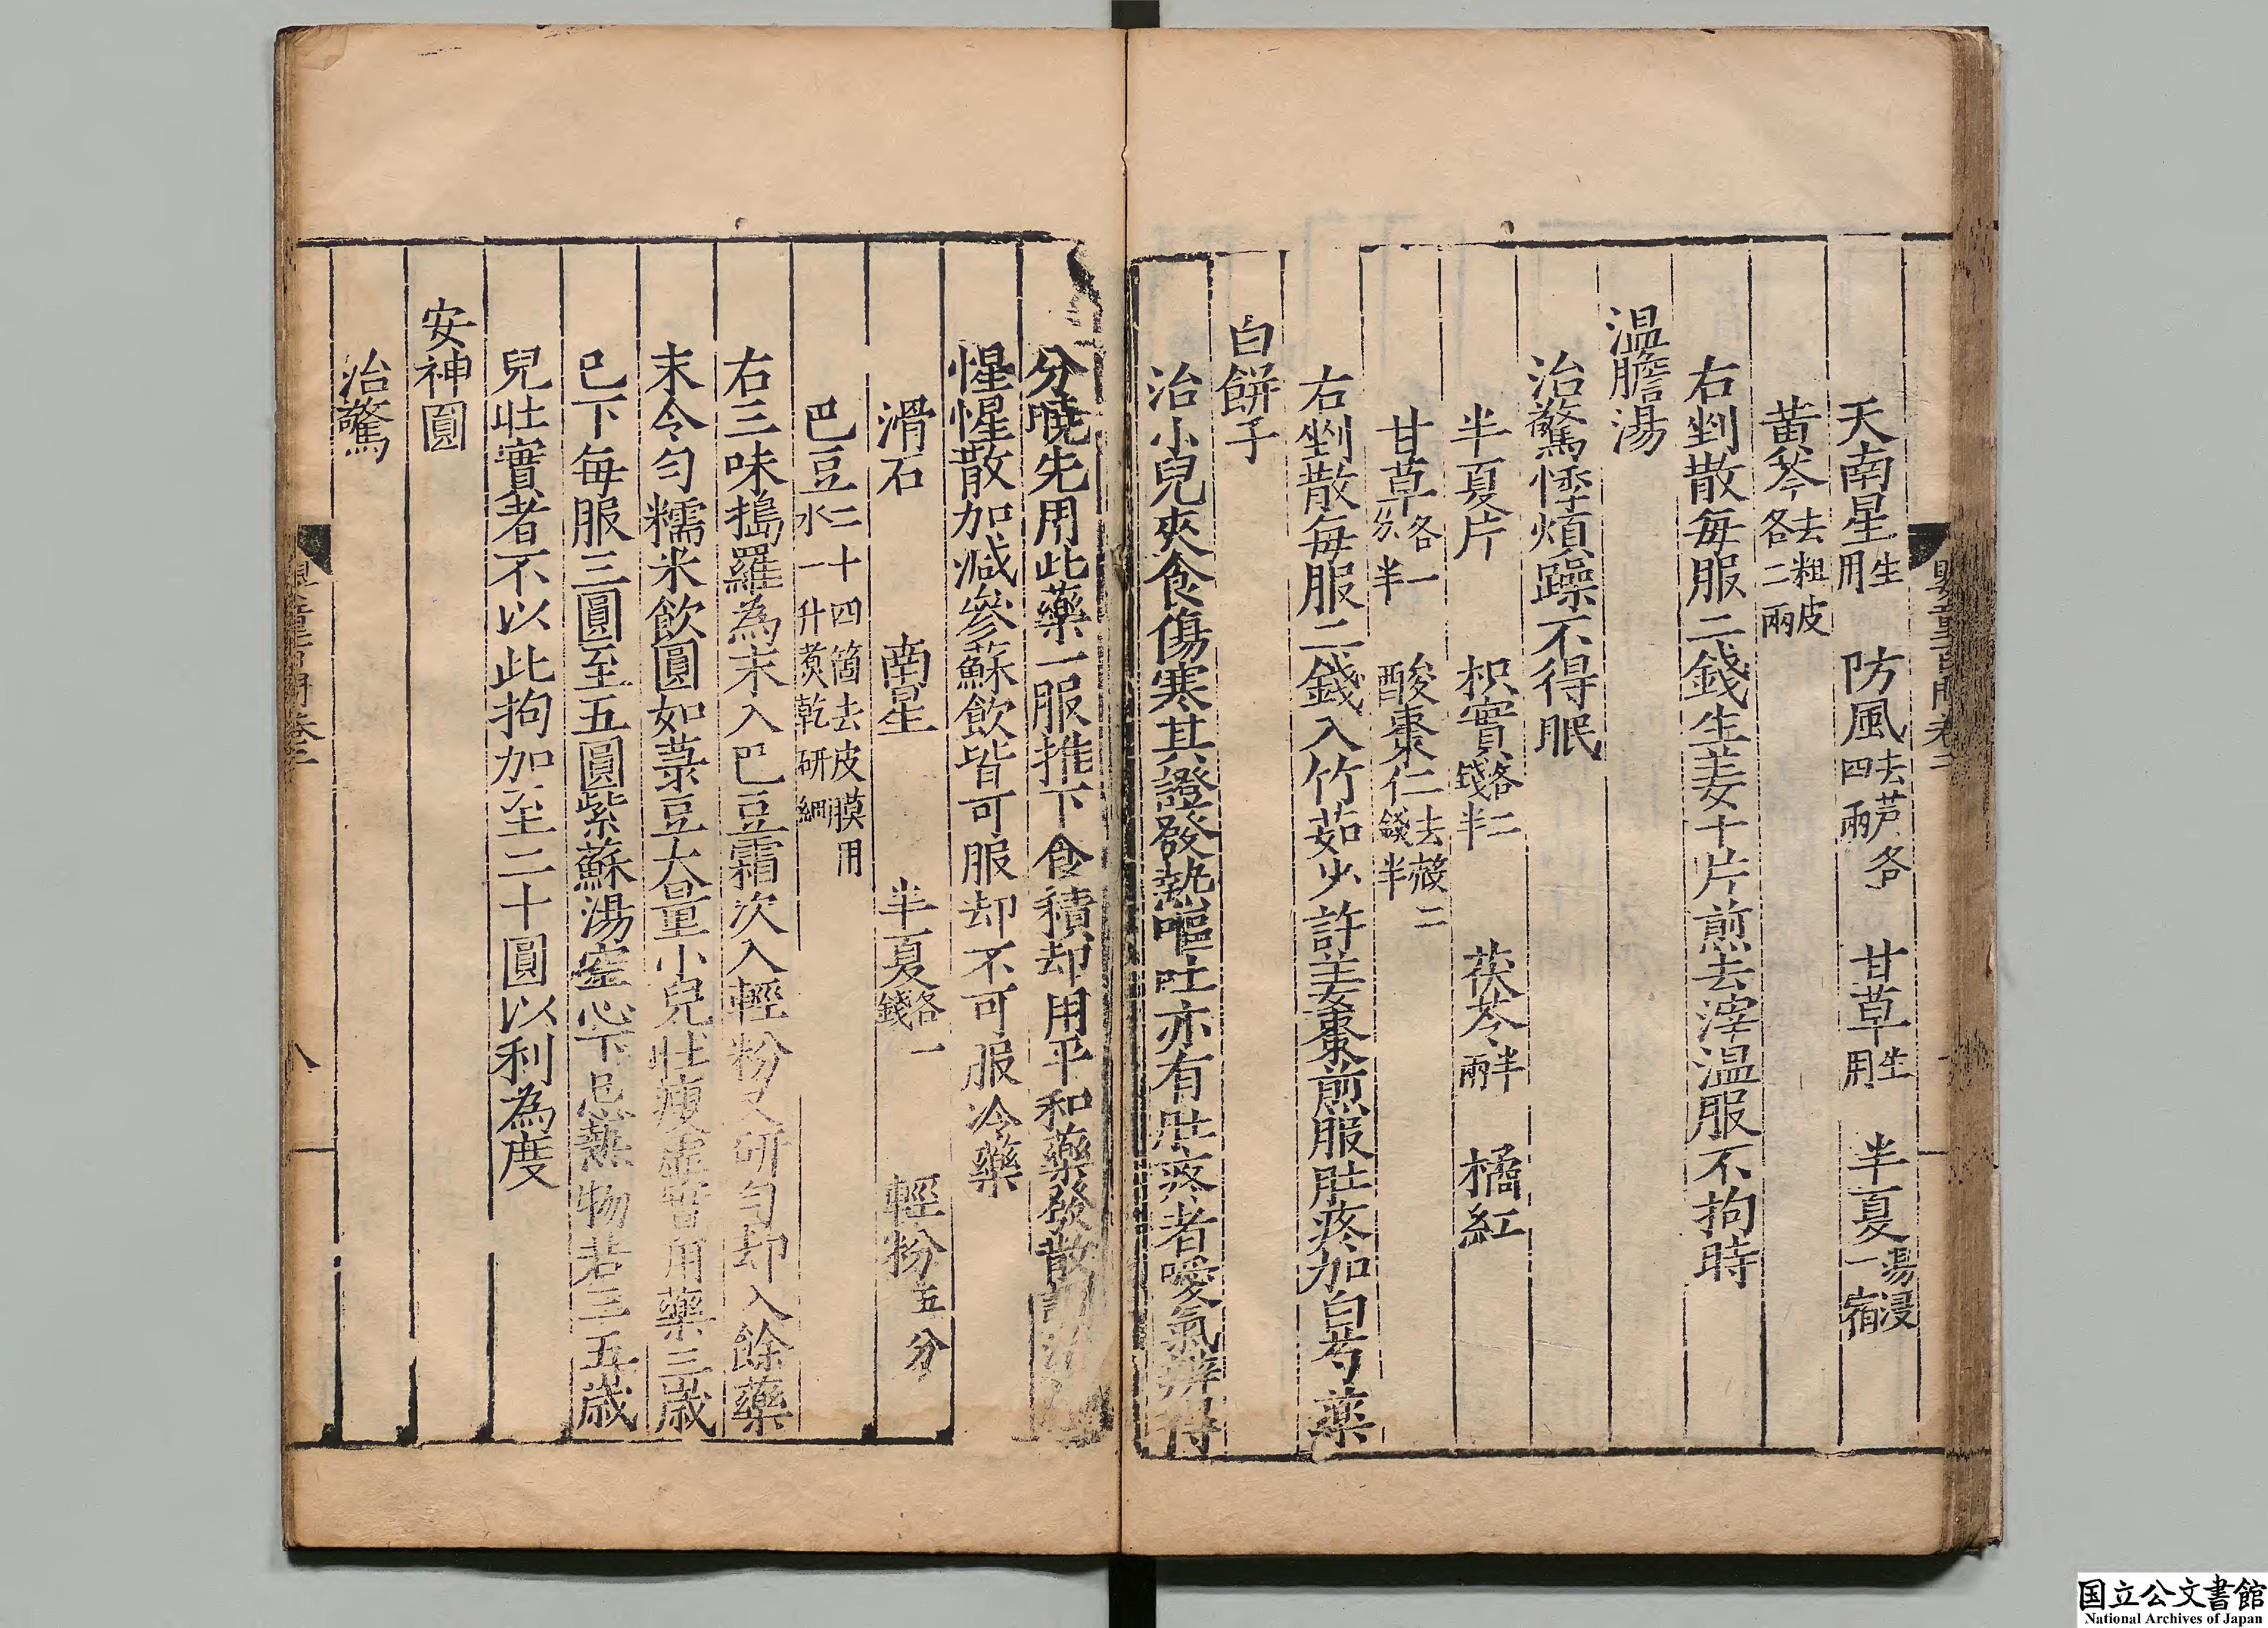 天南星生用 防風去芦各四兩 甘草生用 半夏湯浸一宿
黄芩去粗皮各二兩
右剉散每服二錢生姜十片煎去滓温服不拘時
温膽湯
治驚悸煩躁不得眠
半夏片 枳實各二錢半 茯苓半兩 橘紅
甘草各一分半 酸棗仁去殼二錢半
右剉散每服二錢入竹茹少許姜棗煎服肚疼加白芍藥
白餅子
治小兒夾食傷寒其證發熱嘔吐亦有肚疼者噯氣辨得
分曉先用此藥一服推下食積却用平和藥發散
惺惺散加减參蘇飲皆可服却不可服冷藥
滑石 南星 半夏各一錢 輕粉五分
巴豆二十四箇去皮膜用水一升煑乾研細
右三味搗羅為末入巴豆霜次入輕粉又研勻却入餘藥
末令勻糯米飲圓如菉豆大量小兒壯瘦虛實用藥三歲
已下每服三圓至五圓紫蘇湯空心下忌熱物若三五歲
兒壯實者不以此拘加至二十圓以利為度
安神圓
治驚
八
国立公文書館
National Archives of Japan